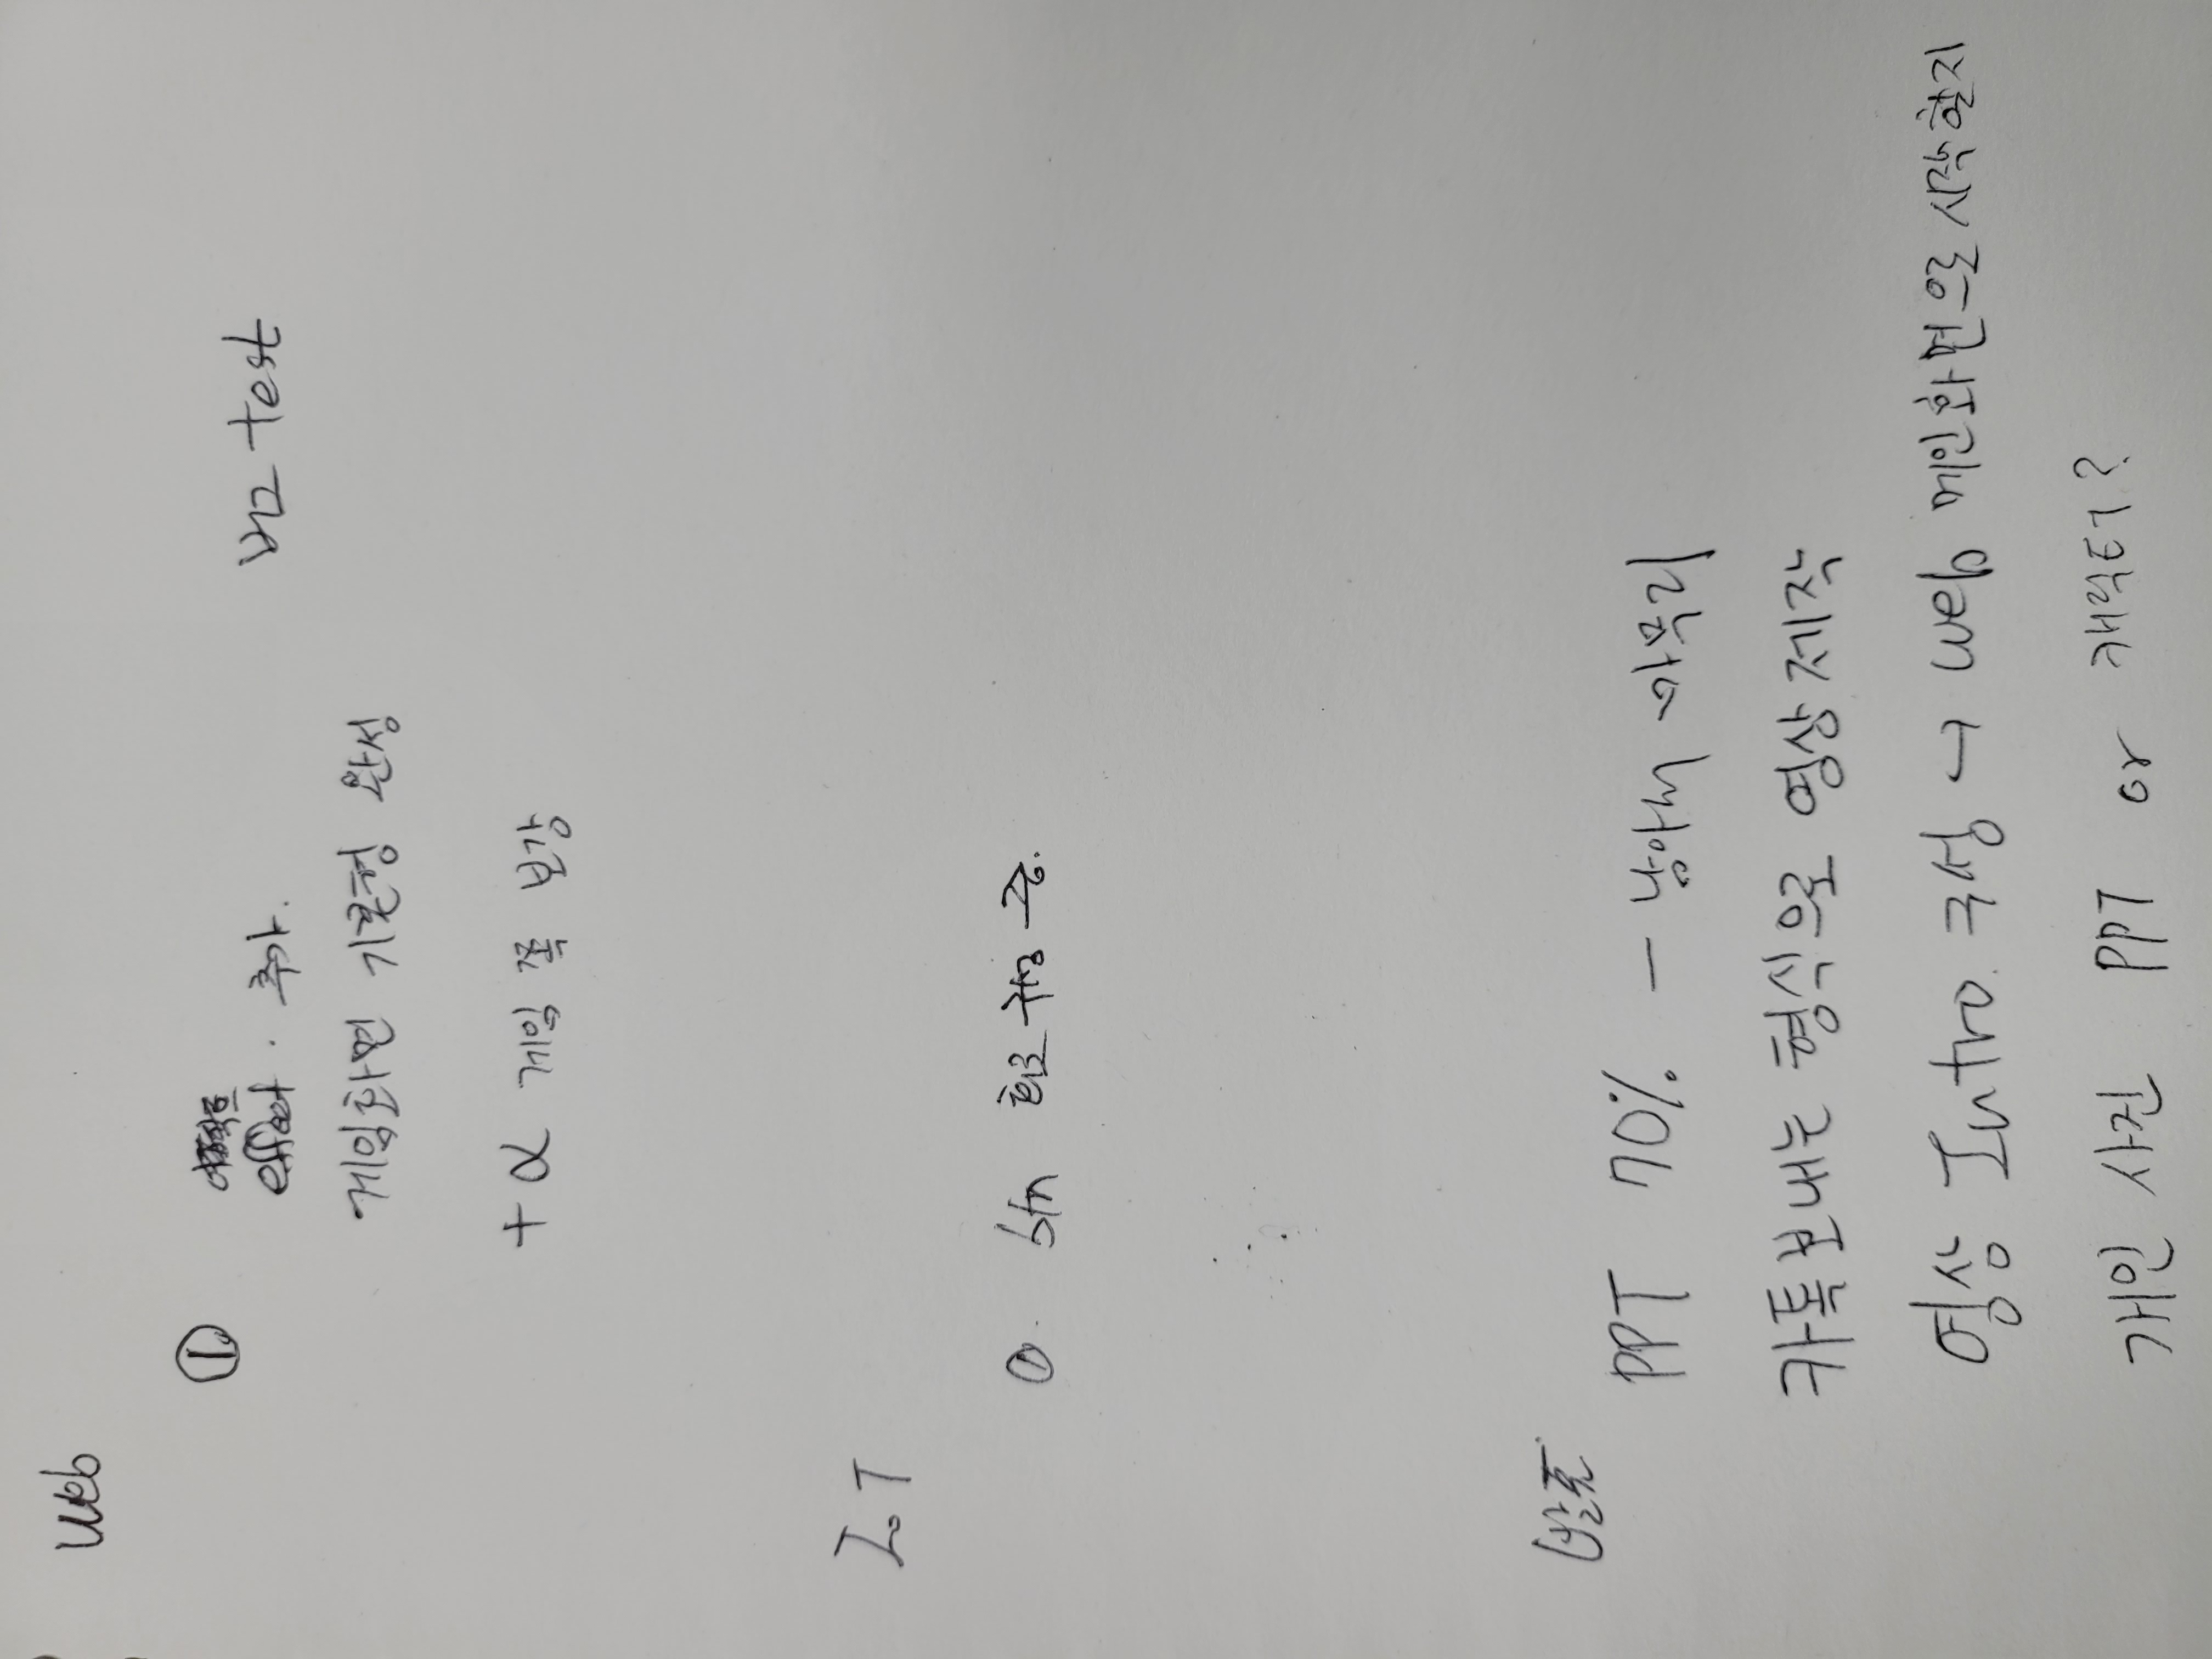 Web
①
effect. 추가. 버그 test
게임화면 기본형 완성
+ α 게임 쪽 보강
IoT
①. btn 회로 구성 중.
발표
PPT 70% - 남아서 마무리
카톡보내는 형식으로 영상제작
영상 Intro. 구성 → web 메인화면으로 시작할지
개인 사진 PPT or 캐릭터?